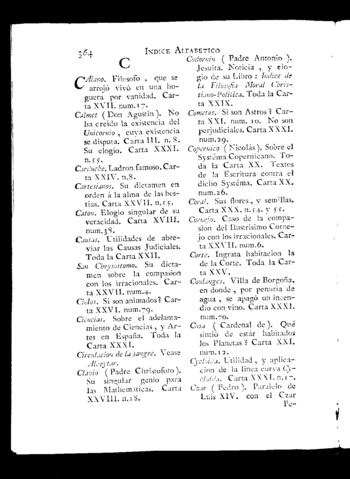 364 INDICE ALFABETICO
C
Cellano. Filosofo, que se
arrojó vivó en una ho-
guera por vanidad. Car-
ta XVII. num.17.
Calmet (Don Agustin). No
ha creido la existencia del
Unicornio, cuya existencia
se disputa. Carta III. n.8.
Su elogio. Carta XXXI.
n.55.
Ladron famoso. Car-
ta XXIV. n.8.
Cartesianos. Su dictamen en
orden á la alma de las bes-
tias. Carta XXVII. n.15.
Caton. Elogio singular de su
veracidad. Carta XVIII.
num.38.
Causas. Utilidades de abre-
viar las Causas Judiciales.
Toda la Carta XXII.
San Chrysostomo. Su dicta-
men sobre la compasion
con los irracionales. Car-
ta XXVII. num.4.
Cielos. Si son animados? Car-
ta XXVI. num.79.
Ciencias. Sobre el adelanta-
miento de Ciencias, y Ar-
tes en España. Toda la
Carta XXXI.
Circulacion de la sangre. Vease
Clavio (Padre Christoforo).
Su singular genio para
las Mathematicas. Carta
XXVIII. n.18.
(Padre Antonio).
Jesuita. Noticia, y elo-
gio de su Libro: Indice de
la Filosofia Moral Chris-
tiano-Politica. Toda la Car-
ta XXIX.
Cometas. Si son Astros? Car-
ta XXI. num.10. No son
perjudiciales. Carta XXXI.
num.29.
Copernico (Nicolás). Sobre el
Systéma Copernicano. To-
da la Carta XX. Textos
de la Escritura contra el
dicho Systéma. Carta XX.
num.26.
Coral. Sus flores, y semillas.
Carta XXX. n.54. y 55.
Cornejo. Caso de la compa-
sion del Ilustrisimo Corne-
jo con los irracionales. Car-
ta XXVII. num.6.
Corte. Ingrata habitacion la
de la Corte. Toda la Car-
ta XXV.
Coulanges. Villa de Borgoña,
en donde, por penuria de
agua, se apagó un incen-
dio con vino. Carta XXXI.
num.70.
Cusa (Cardenal de). Qué
sintió de estár habitados
los Planetas? Carta XXI.
num.12.
Cycloida. Utilidad, y aplica-
cion de la linea curva Cy-
cloida. Carta XXXI. n.17.
Czar (Pedro). Paralelo de
Luis XIV. con el Czar
Pe-